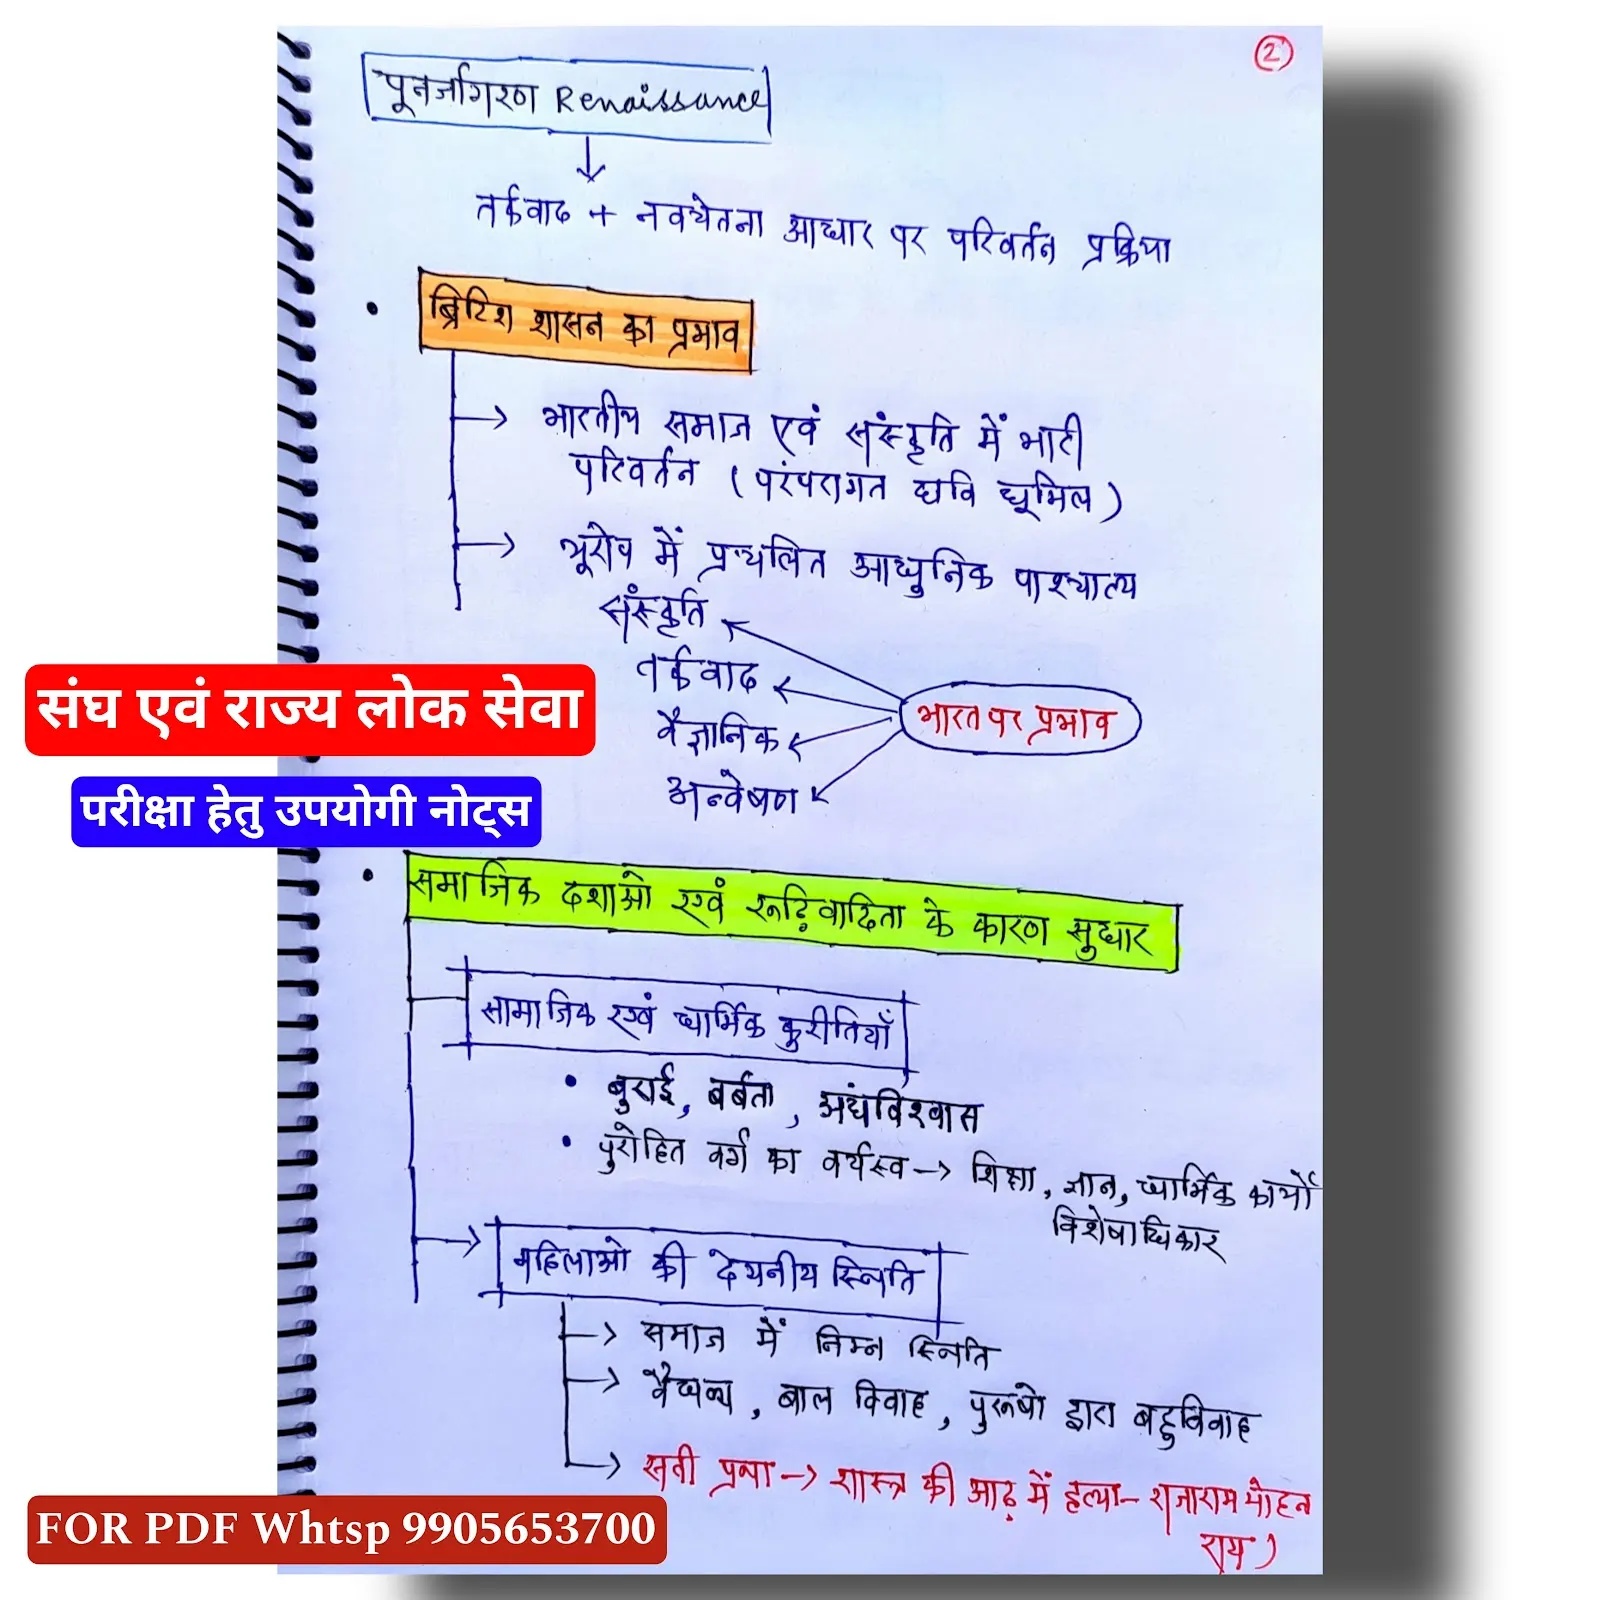 2
पूनर्जागरण Renaissance
तर्कवाद + नवचेतना आधार पर परिवर्तन प्रक्रिया
ब्रिटिश शासन का प्रभाव
भारतीय समाज एवं संस्कृति में भारी
परिवर्तन (परंपरागत छवि धूमिल)
यूरोप में प्रचलित आधुनिक पाश्चात्य
संस्कृति
तर्कवाद
वैज्ञानिक
अन्वेषण
भारत पर प्रभाव
संघ एवं राज्य लोक सेवा
परीक्षा हेतु उपयोगी नोट्स
समाजिक दशाओ एवं रूढ़िवादिता के कारण सुधार
सामाजिक एवं धार्मिक कुरीतियाँ
बुराई, बर्बता, अंधविश्वास
पुरोहित वर्ग का वर्चस्व → शिक्षा, ज्ञान, धार्मिक कार्यों
विशेषाधिकार
महिलाओ की देयनीय स्थिति
समाज में निम्न स्थिति
वैधव्य, बाल विवाह, पुरूषो द्वारा बहुविवाह
सती प्रथा → शास्त्र की आढ़ में हत्या - राजाराम मोहन
राय)
FOR PDF Whtsp 9905653700